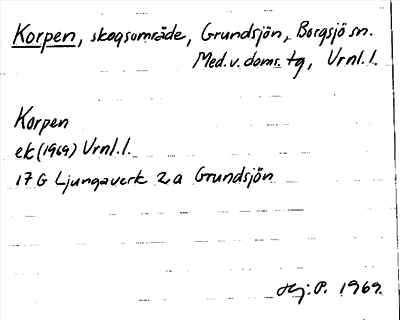 Korpen, skogsområde, Grundsjön, Borgsjö sn.
Med. v. doms. tg, Vrnl. l.
Korpen
ek (1969) Vrnl. l.
17 G Ljungaverk 2 a Grundsjön
Hj. P. 1969.